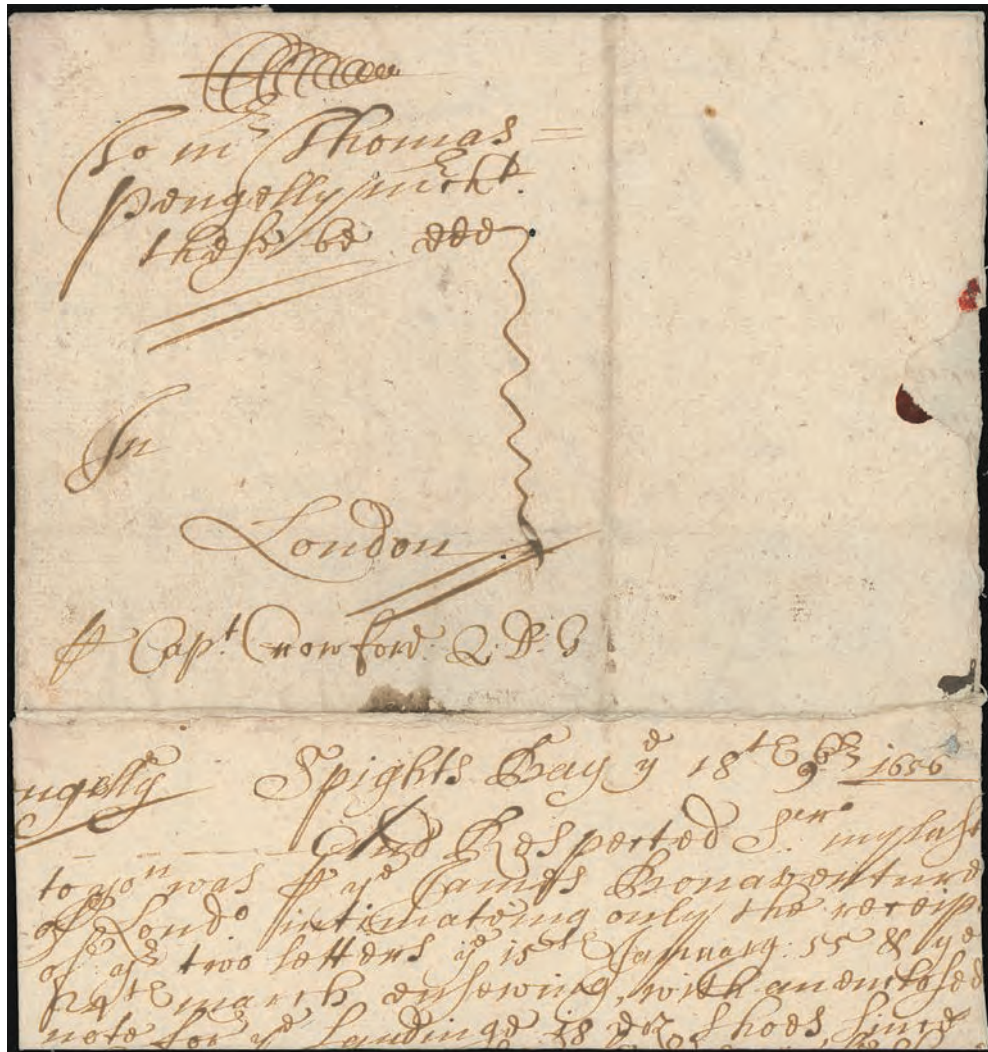 To mr Thomas =
Pengelly mrcht.
these be ddd
In
London.
Capt. Crowford. Q. D. G
ngelly Spights Bay ye 18th 9br 1656
And Respected Sr. my last
to you was ye James Bonaventure
of Londo intimateing only the receip.
of yr two letters ye 15th January: 55 & ye
24th march ensewing, with an enclosed
note for ye Landinge 18 doz Shoes, Since